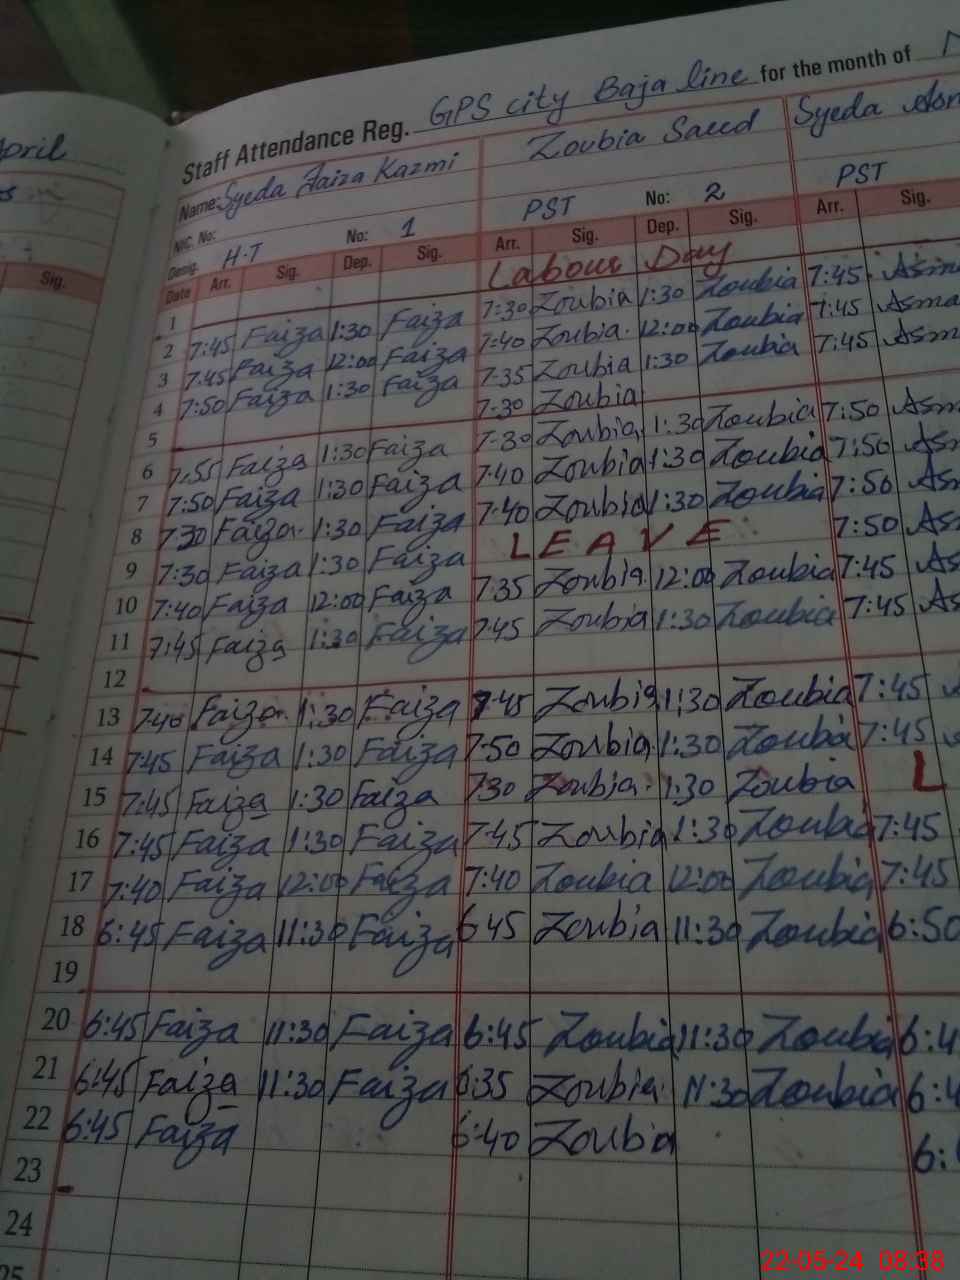 April
Sig.
Staff Attendance Reg. GPS city Baja line for the month of
Name: Syeda Faiza Kazmi Zoubia Saeed Syeda
N.I.C. No:
Desig. H.T No: 1 PST No: 2 PST
Date Arr. Sig. Dep. Sig. Arr. Sig. Dep. Sig. Arr. Sig.
1 Labour Day
2 7:45 Faiza 1:30 Faiza 7:30 Zoubia 1:30 Zoubia 7:45 Asma
3 7:45 Faiza 12:00 Faiza 7:40 Zoubia 12:00 Zoubia 7:45 Asma
4 7:50 Faiza 1:30 Faiza 7:35 Zoubia 1:30 Zoubia 7:45 Asm
5 7:30 Zoubia
6 7:55 Faiza 1:30 Faiza 7:30 Zoubia 1:30 Zoubia 7:50 Asm
7 7:50 Faiza 1:30 Faiza 7:40 Zoubia 1:30 Zoubia 7:50 Asm
8 7:30 Faiza 1:30 Faiza 7:40 Zoubia 1:30 Zoubia 7:50 Asm
9 7:30 Faiza 1:30 Faiza LEAVE 7:50 As
10 7:40 Faiza 12:00 Faiza 7:35 Zoubia 12:00 Zoubia 7:45 As
11 7:45 Faiza 1:30 Faiza 7:45 Zoubia 1:30 Zoubia 7:45 As
12
13 7:40 Faiza 1:30 Faiza 7:45 Zoubia 1:30 Zoubia 7:45
14 7:45 Faiza 1:30 Faiza 7:50 Zoubia 1:30 Zouba 7:45
15 7:45 Faiza 1:30 Faiza 7:30 Zoubia 1:30 Zoubia L
16 7:45 Faiza 1:30 Faiza 7:45 Zoubia 1:30 Zoubia 7:45
17 7:40 Faiza 12:00 Faiza 7:40 Zoubia 12:00 Zoubia 7:45
18 6:45 Faiza 11:30 Faiza 6 45 Zoubia 11:30 Zoubia 6:50
19
20 6:45 Faiza 11:30 Faiza 6:45 Zoubia 11:30 Zoubia 6:4
21 6:45 Faiza 11:30 Faiza 6:35 Zoubia 11:30 Zoubia 6:4
22 6:45 Faiza 6:40 Zoubia 6:
23
24
25
22-05-24 08:38